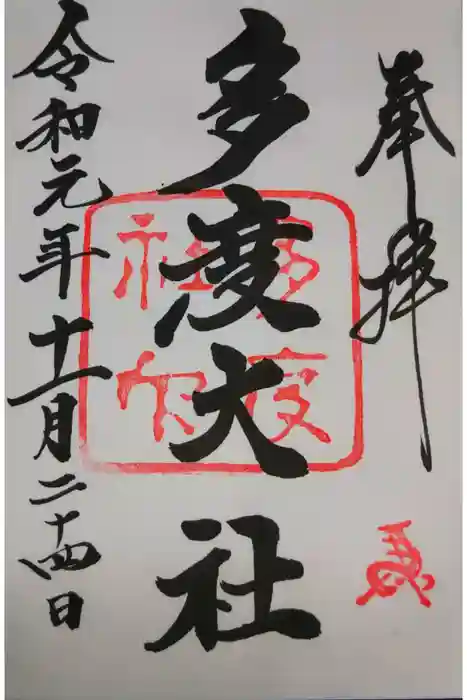 奉拝
多度大社
令和元年十一月二十四日